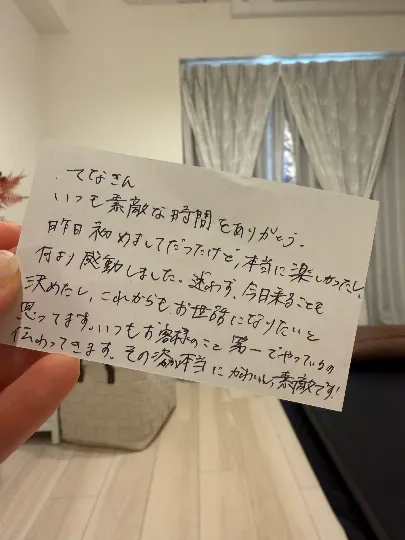 てなさん
いつも素敵な時間をありがとう。
昨日初めましてだったけど、本当に楽しかったし、
何より感動しました。迷わず、今日来ることも
決めたし、これからもお世話になりたいと
思ってます。いつもお客様のこと第一でやっているの
伝わってきます。その姿が本当にかわいいし素敵です!